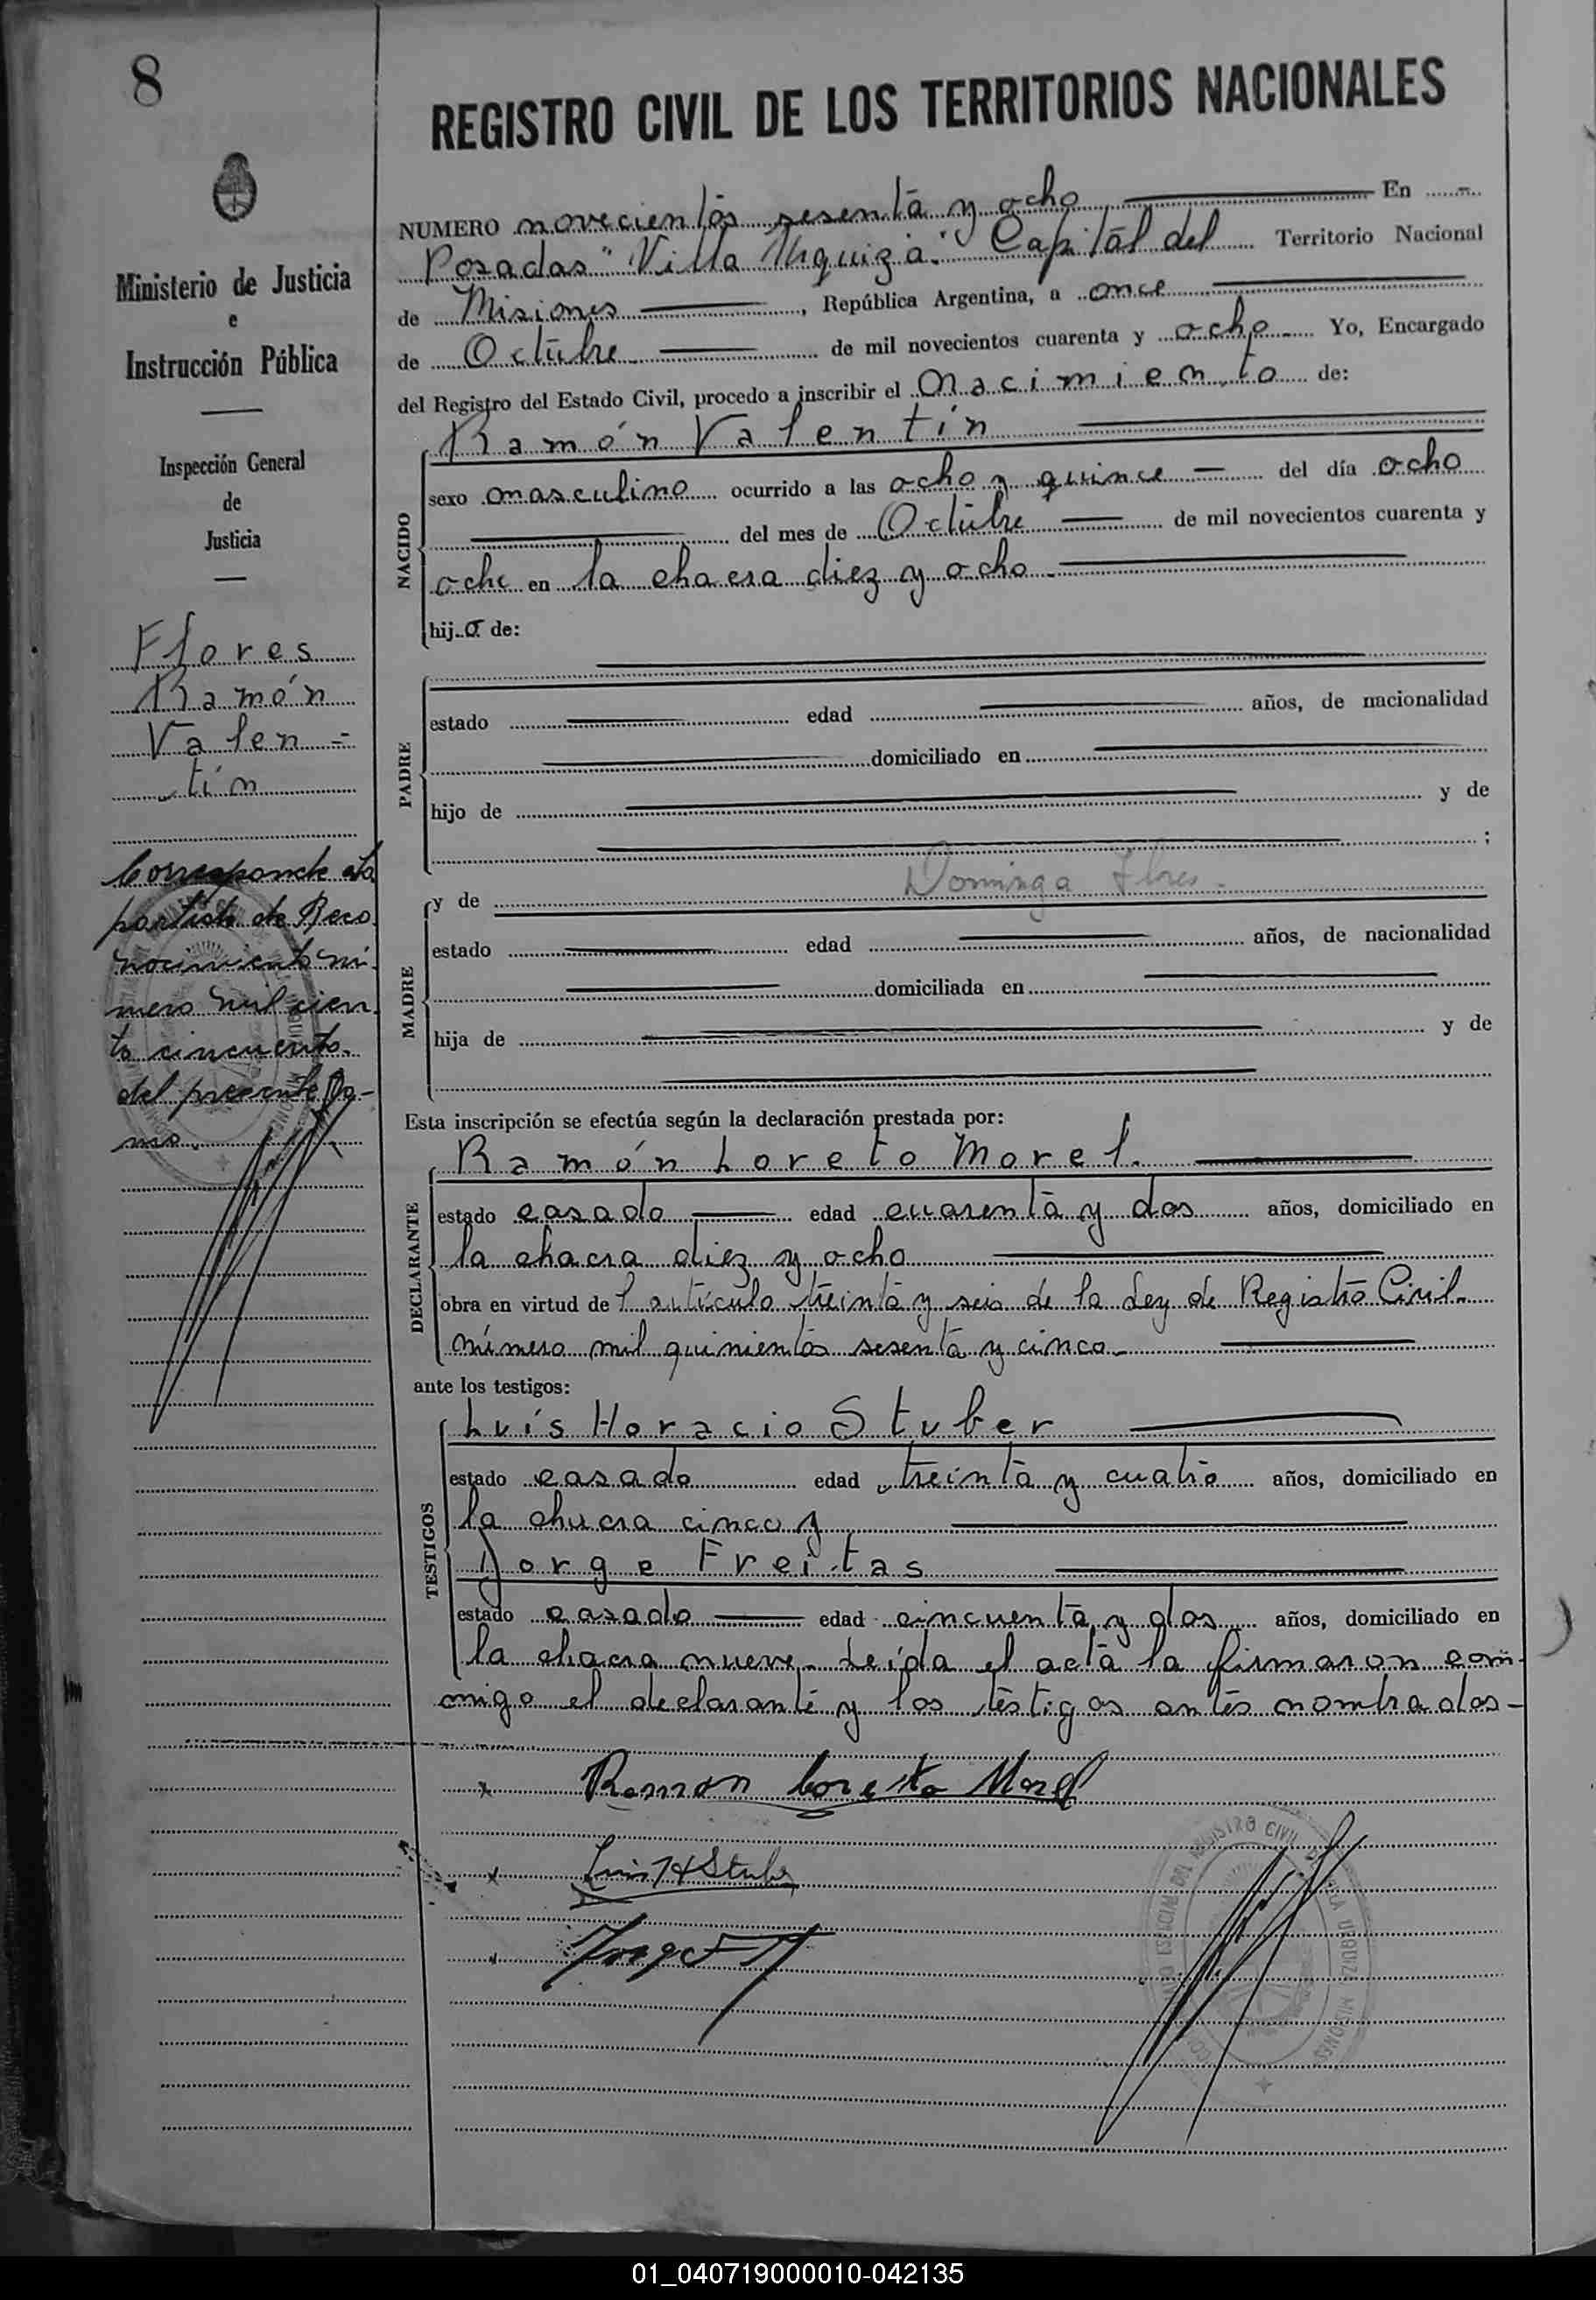 8
Ministerio de Justicia
e
Instrucción Pública
Inspección General
de
Justicia
Flores
Ramón
Valen=
tín
Corresponde a la
partida de Reco
nocimiento nú-
mero mil cien
to cincuenta
del presente To-
mo.
REGISTRO CIVIL DE LOS TERRITORIOS NACIONALES
NUMERO novecientos sesenta y ocho En -
Posadas "Villa Urquiza" Capital del Territorio Nacional
de Misiones, República Argentina, a once
de Octubre de mil novecientos cuarenta y ocho Yo, Encargado
del Registro del Estado Civil, procedo a inscribir el nacimiento de:
NACIDO
Ramón Valentín
sexo masculino ocurrido a las ocho y quince del día ocho
del mes de Octubre de mil novecientos cuarenta y
ocho en la chacra diez y ocho.
hijo de:
PADRE
estado edad años, de nacionalidad
domiciliado en
hijo de y de
;
MADRE
y de Dominga Flores.
estado edad años, de nacionalidad
domiciliada en
hija de y de
Esta inscripción se efectúa según la declaración prestada por:
DECLARANTE
Ramón Loreto Morel.
estado casado edad cuarenta y dos años, domiciliado en
la chacra diez y ocho
obra en virtud del artículo treinta y seis de la Ley de Registro Civil
número mil quinientos sesenta y cinco.
ante los testigos:
TESTIGOS
Luís Horacio Stuber
estado casado edad treinta y cuatro años, domiciliado en
la chacra cinco y
Jorge Freitas
estado casado edad cincuenta y dos años, domiciliado en
la chacra nueve. Leída el acta la firmaron con-
migo el declarante y los testigos antes nombrados-
x Ramon Loreto Morel
x Luis H Stuber
x Jorge F
REGISTRO CIVIL URQUIZA MISIONES
01_040719000010-042135